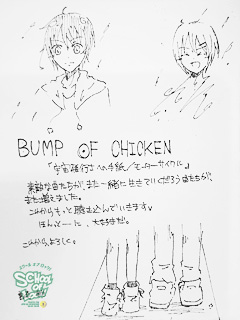 BUMP OF CHICKEN
「宇宙飛行士への手紙/モーターサイクル」
素敵な曲たちが、また一緒に生きていくだろう曲たちが、
また増えました。
これからもっと聴き込んでいきます。
ほんとーーに、大好きだ。
これからもよろしく。
SCHOOL
OF